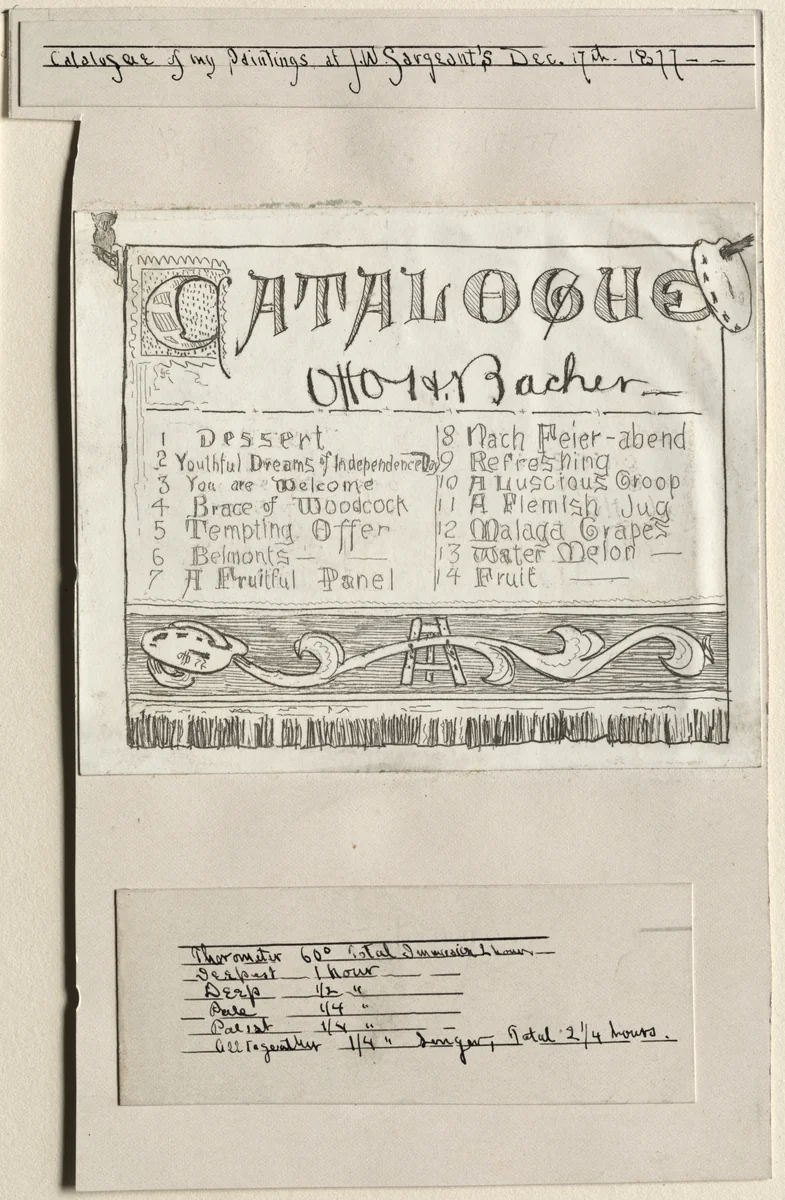 Catalogue of my Paintings at J.W. Sargeant's Dec. 17th. 1877 - -
CATALOGUE
Otto H. Bacher
1 Dessert
2 Youthful Dreams of Independence Day
3 You are Welcome
4 Brace of Woodcock
5 Tempting Offer
6 Belmonts —
7 A Fruitful Panel
8 Nach Feier-abend
9 Refreshing
10 A Luscious Groop
11 A Flemish Jug
12 Malaga Grapes
13 Water Melon —
14 Fruit —
Thorometer 60° Total Immersion 2 hours
Deepest 1 hour
Deep 1/2 "
Pale 1/4 "
Palest 1/4 "
1/4 " longer, Total 2 1/4 hours.